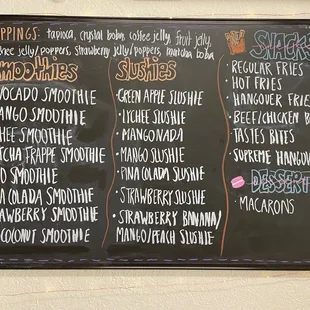 PPINGS: tapioca, crystal boba, coffee jelly, fruit jelly,
hee jelly/poppers, strawberry jelly/poppers, matcha boba
moothies
VOCADO SMOOTHIE
ANGO SMOOTHIE
HEE SMOOTHIE
TCHA FRAPPE SMOOTHIE
O SMOOTHIE
A COLADA SMOOTHIE
AWBERRY SMOOTHIE
COCONUT SMOOTHIE
Slushies
GREEN APPLE SLUSHIE
• LYCHEE SLUSHIE
• MANGONADA
• MANGO SLUSHIE
PINA COLADA SLUSHIE
• STRAWBERRY SLUSHIE
• STRAWBERRY BANANA/
MANGO/PEACH SLUSHIE
SNACKS
• REGULAR FRIES
• HOT FRIES
• HANGOVER FRIE
• BEEF/CHICKEN B
• TASTES BITES
• SUPREME HANGOV
DESSERT
• MACARONS